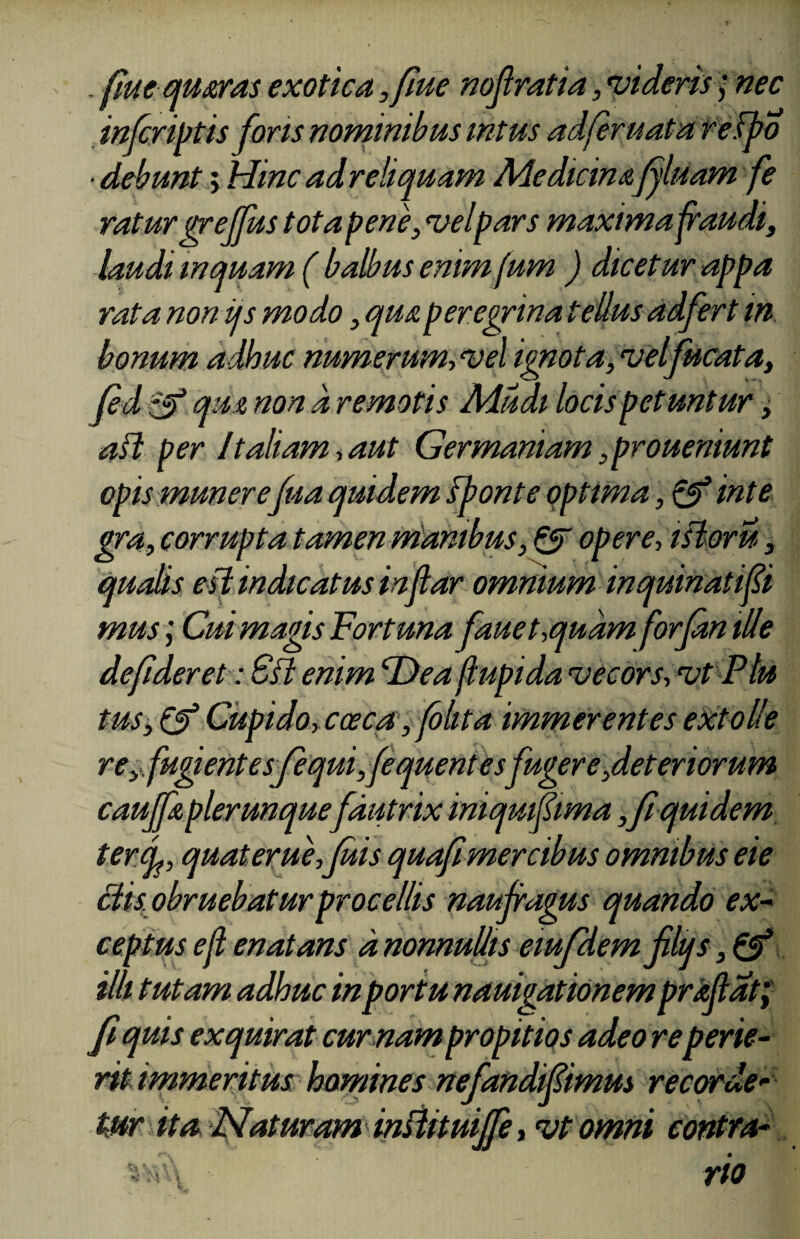 ſiue quæras exotica, ſiue noſtratia, videris; nec
inſcriptis foris nominibus intus adſeruata reſpō
debunt; Hinc ad reliquam Medicinæ ſyluam ſe
ratur greſſus tota pene, vel pars maxima fraudi,
laudi inquam ( balbus enim ſum ) dicetur appa
rata non ijs modo, quæ peregrina tellus adfert in
bonum adhuc numerum, vel ignota, vel fucata,
ſed & quæ non à remotis Mūdi locis petuntur,
aſt per Italiam, aut Germaniam, proueniunt
opis munere ſua quidem ſponte optima, & inte
gra, corrupta tamen manibus, & opere, iſtorū,
qualis eſt indicatus inſtar omnium inquinatiſſi
mus; Cui magis Fortuna fauet, quàm forſan ille
deſideret: Eſt enim Dea ſtupida vecors, vt Plu
tus, & Cupido, cœca, ſolita immerentes extolle
re, fugientes ſequi, ſequentes fugere, deteriorum
cauſſæ plerunque fautrix iniquiſſima, ſi quidem
terq;, quaterue, ſuis quaſi mercibus omnibus eie
ctis obruebatur procellis naufragus quando ex-
ceptus eſt enatans à nonnullis eiuſdem filijs, &
illi tutam adhuc in portu nauigationem præſtāt;
ſi quis exquirat cur nam propitios adeo reperie-
rit immeritus homines nefandiſſimus recorde-
tur ita Naturam inſtituiſſe, vt omni contra-
rio